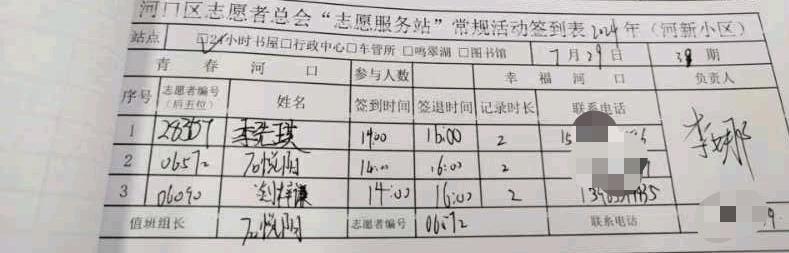 河口区志愿者总会“志愿服务站”常规活动签到表2024年（河新小区）
站点 ☑24小时书屋□行政中心□车管所□鸣翠湖□图书馆 7月29日 期
青春河口 参与人数 幸福河口 负责人
序号 志愿者编号（后五位） 姓名 签到时间 签退时间 记录时长 联系电话
1 28357 14:00 16:00 2 15
2 06572 石悦阳 14:00 16:00 2
3 06090 刘梓谦 14:00 16:00 2
李娜
值班组长 石悦阳 志愿者编号 06572 联系电话